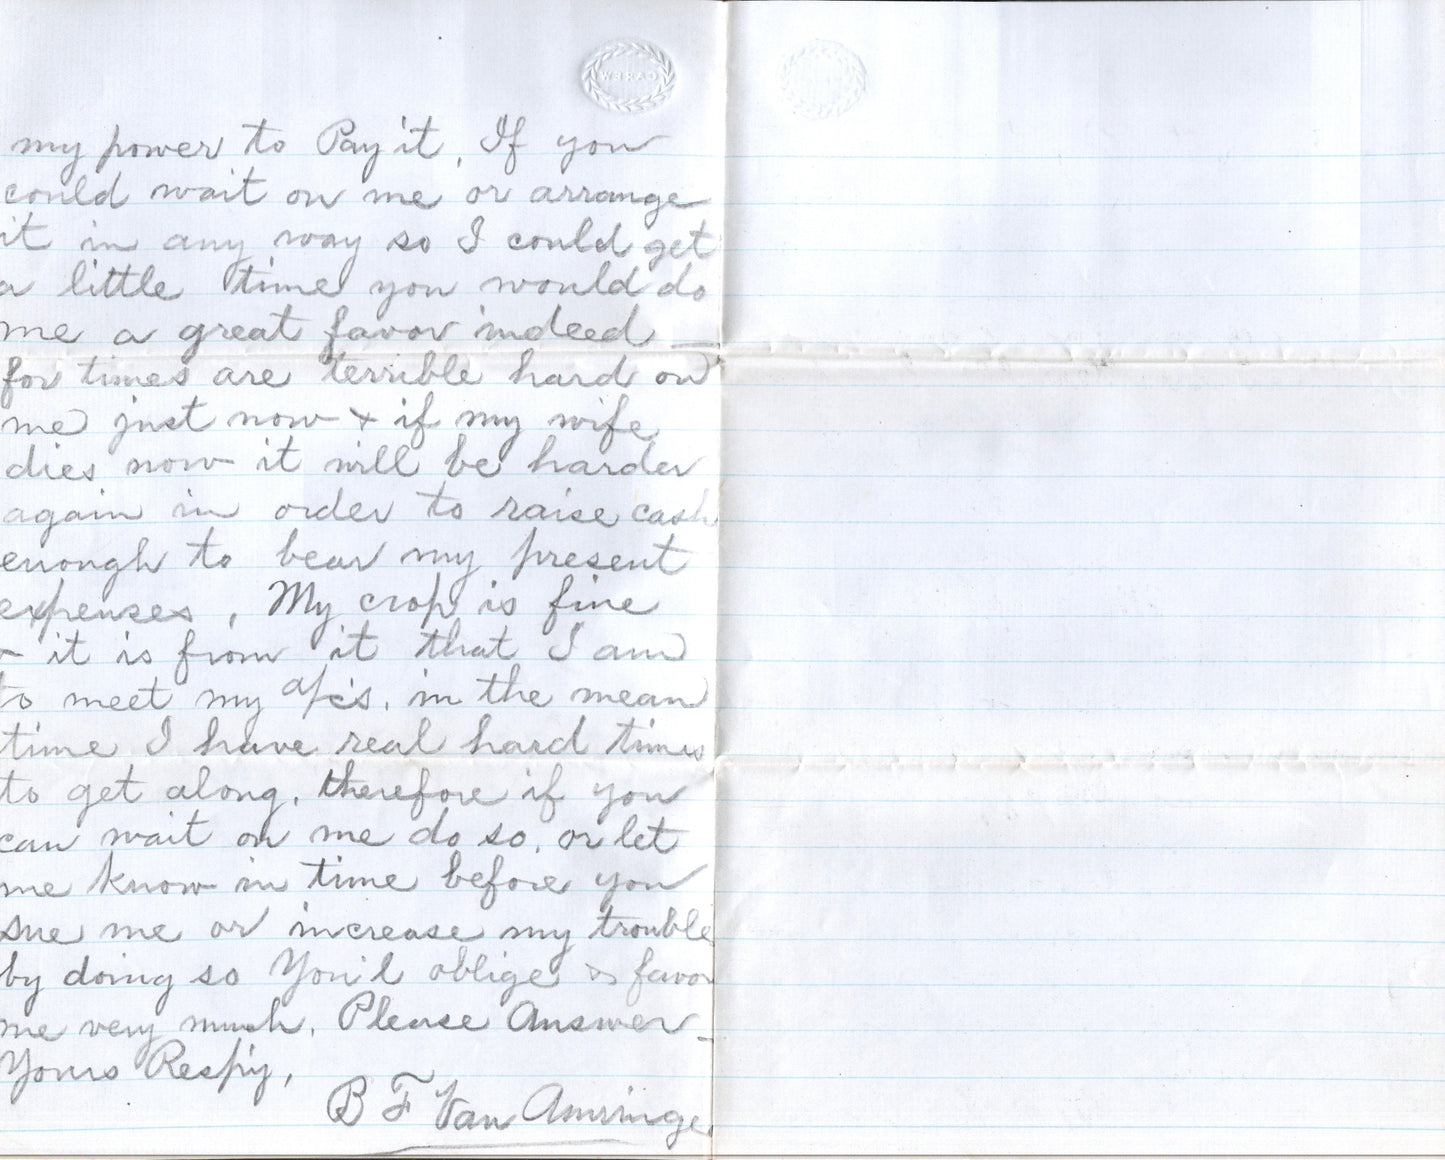 my power to Pay it, If you
could wait on me or arrange
it in any way so I could get
a little time you would do
me a great favor indeed —
for times are terrible hard on
me just now & if my wife
dies now it will be harder
again in order to raise cash
enough to bear my present
expenses, My crop is fine
& it is from it that I am
to meet my a/c's, in the mean
time I have real hard times
to get along, therefore if you
can wait on me do so, or let
me know in time before you
sue me or increase my trouble
by doing so You'l oblige & favor
me very much, Please Answer
Yours Resp'y,
B F Van Amringe